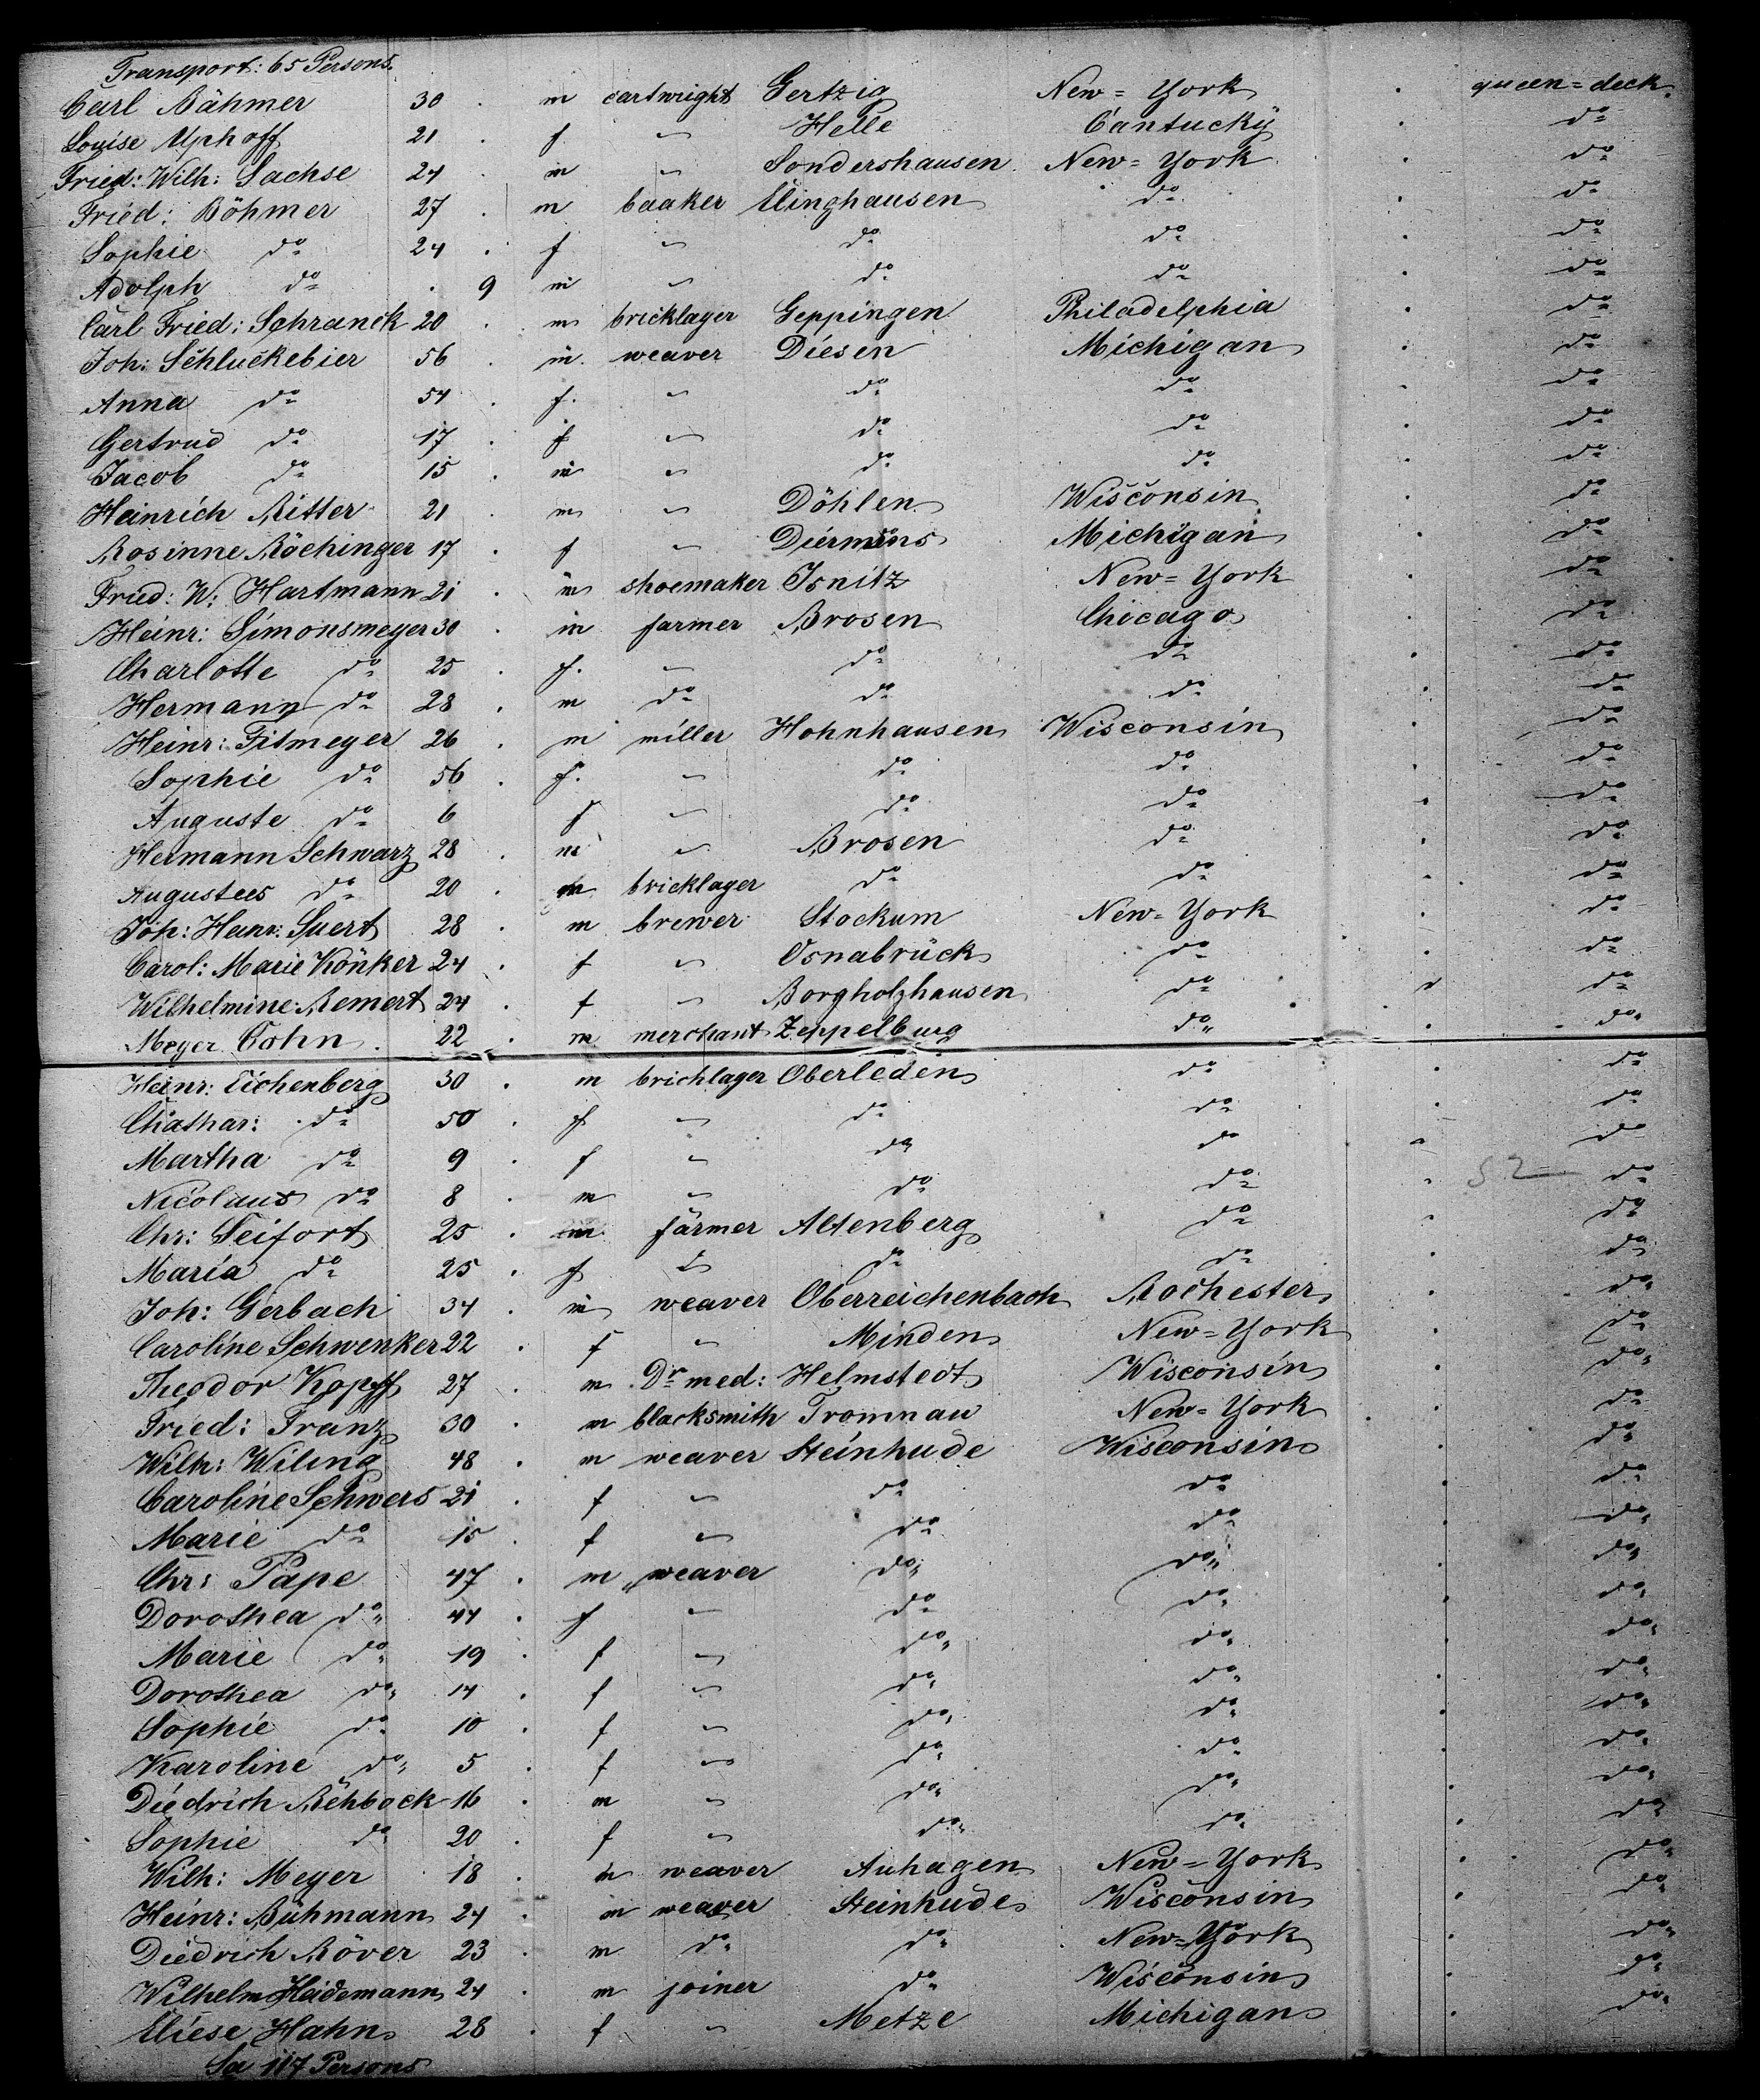 Transport: 65 Persons.
Carl Bähmer 30 . m cartwright Gertzig New=York . queen=deck.
Louise Uphoff 21 . f " Helle Cantucky . do
Fried: Wilh: Sachse 24 . m " Sondershausen New=York . do
Fried: Böhmer 27 . m baaker Elinghausen do . do
Sophie do 24 . f " do do . do
Adolph do . 9 m " do do . do
Carl Fried: Schranck 20 . m bricklayer Geppingen Philadelphia . do
Joh: Schluckebier 56 . m weaver Diesen Michigan . do
Anna do 54 . f. " do do . do
Gertrud do 17 . f " do do . do
Jacob do 15 . m " do do . do
Heinrich Ritter 21 . m " Döhlen Wisconsin . do
Rosinne Röchinger 17 . f " Michigan . do
Fried: W: Hartmann 21 . m shoemaker Isnitz New=York . do
Heinr: Simonsmeyer 30 . m farmer Brosen Chicago . do
Charlotte do 25 . f. " do do . do
Hermann do 28 . m do do do . do
Heinr: Fitmeyer 26 . m miller Hohnhausen Wisconsin . do
Sophie do 56 . f. " do do . do
Auguste do 6 f " do do . do
Hermann Schwarz 28 . m " Brosen do . do
Augustees do 20 . m bricklayer do do . do
Joh: Heinr: Suert 28 . m brewer Stockum New=York . do
Carol: Marie Könker 24 . f " Osnabrück do . do
Wilhelmine Remert 24 . f " Borgholzhausen do . do
Meyer Cohn . 22 . m merchant Zeppelburg do . do
Heinr: Eichenberg 30 . m brichlager Oberleden do . do
Chathar: do 50 . f " do do . do
Martha do 9 . f " do do . do
Nicolaus do 8 . m " do do . 52 do
Chr: Seifort 25 . m farmer Altenberg do . do
Maria do 25 . f " do do . do
Joh: Gerbach 34 . m weaver Oberreichenbach Rochester . do
Caroline Schwenker 22 . f " Minden New=York . do
Theodor Kopff 27 . m Dr med: Helmstedt Wisconsin . do
Fried: Franz 30 . m blacksmith Tromnau New=York . do
Wilh: Wiling 48 . m weaver Steinhude Wisconsin . do
Caroline Schwers 21 . f " do do . do
Marie do 15 . f " do do . do
Chr: Pape 47 . m weaver do do . do
Dorothea do 44 . f " do do . do
Marie do 19 . f " do do . do
Dorothea do 14 . f " do do . do
Sophie do 10 . f " do do . do
Karoline do 5 . f " do do . do
Diedrich Rehbock 16 . m " do do . do
Sophie do 20 . f " do do . do
Wilh: Meyer 18 . m weaver Auhagen New=York . do
Heinr: Bühmann 24 . m weaver Steinhude Wisconsin . do
Diedrich Röver 23 . m do do New=York . do
Wilhelm Heidemann 24 . m joiner do Wisconsin . do
Eliese Hahn 28 . f " Metze Michigan . do
Sa 117 Persons